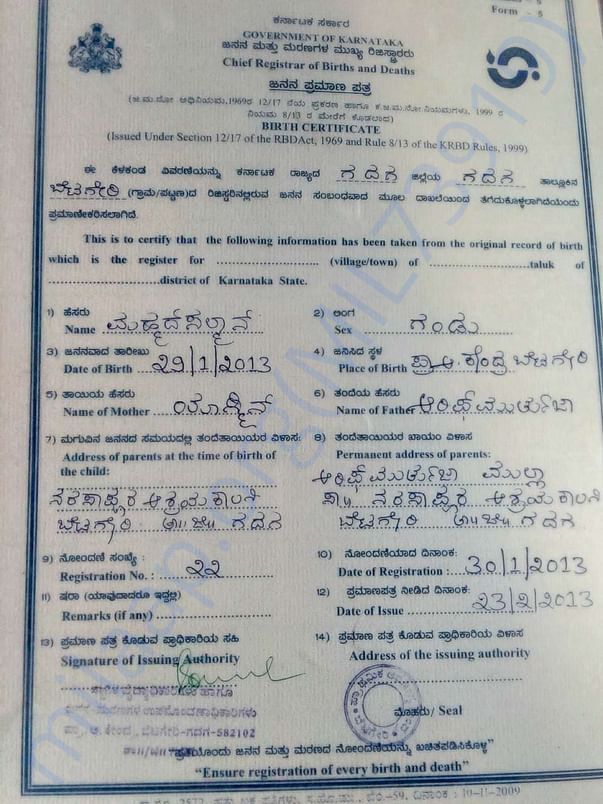 Form - 5
ಕರ್ನಾಟಕ ಸರ್ಕಾರ
GOVERNMENT OF KARNATAKA
ಜನನ ಮತ್ತು ಮರಣಗಳ ಮುಖ್ಯ ರಿಜಿಸ್ಟ್ರಾರರು
Chief Registrar of Births and Deaths
ಜನನ ಪ್ರಮಾಣ ಪತ್ರ
(ಜ.ಮ.ನೋಂ ಅಧಿನಿಯಮ,1969ರ 12/17 ನೆಯ ಪ್ರಕರಣ ಹಾಗೂ ಕ.ಜ.ಮ.ನೋಂ.ನಿಯಮಗಳು, 1999 ರ
ನಿಯಮ 8/13 ರ ಮೇರೆಗೆ ಕೊಡಲಾದ)
BIRTH CERTIFICATE
(Issued Under Section 12/17 of the RBDAct, 1969 and Rule 8/13 of the KRBD Rules, 1999)
ಈ ಕೆಳಕಂಡ ವಿವರಣೆಯನ್ನು ಕರ್ನಾಟಕ ರಾಜ್ಯದ ಗದಗ ಜಿಲ್ಲೆಯ ಗದಗ ತಾಲ್ಲೂಕಿನ
ಬೆಟಗೇರಿ (ಗ್ರಾಮ/ಪಟ್ಟಣ)ದ ರಿಜಿಸ್ಟರಿನಲ್ಲಿರುವ ಜನನ ಸಂಬಂಧವಾದ ಮೂಲ ದಾಖಲೆಯಿಂದ ತೆಗೆದುಕೊಳ್ಳಲಾಗಿದೆಯೆಂದು
ಪ್ರಮಾಣೀಕರಿಸಲಾಗಿದೆ.
This is to certify that the following information has been taken from the original record of birth
which is the register for ........................ (village/town) of ........................taluk of
........................district of Karnataka State.
1) ಹೆಸರು
Name ಮಹ್ಮದ್‌ಸಲ್ಮಾನ್
2) ಲಿಂಗ
Sex ಗಂಡು
3) ಜನನವಾದ ತಾರೀಖು
Date of Birth 29/1/2013
4) ಜನಿಸಿದ ಸ್ಥಳ
Place of Birth ಪ್ರಾ.ಆ. ಕೇಂದ್ರ ಬೆಟಗೇರಿ
5) ತಾಯಿಯ ಹೆಸರು
Name of Mother ಯಾಸ್ಮಿನ್
6) ತಂದೆಯ ಹೆಸರು
Name of Father ಆರಿಫ್‌ಮುರ್ತುಜಾ
7) ಮಗುವಿನ ಜನನದ ಸಮಯದಲ್ಲಿ ತಂದೆತಾಯಿಯರ ವಿಳಾಸ:
Address of parents at the time of birth of
the child:
ನರಸಾಪುರ ಆಶ್ರಯ ಕಾಲನಿ
ಬೆಟಗೇರಿ ಗದಗ
8) ತಂದೆತಾಯಿಯರ ಖಾಯಂ ವಿಳಾಸ
Permanent address of parents:
ಆರಿಫ್‌ಮುರ್ತುಜಾ ಮುಲ್ಲಾ
ನರಸಾಪುರ ಆಶ್ರಯ ಕಾಲನಿ
ಬೆಟಗೇರಿ ಗದಗ
9) ನೋಂದಣಿ ಸಂಖ್ಯೆ :
Registration No. : 22
10) ನೋಂದಣಿಯಾದ ದಿನಾಂಕ:
Date of Registration : 30/1/2013
11) ಷರಾ (ಯಾವುದಾದರೂ ಇದ್ದಲ್ಲಿ)
Remarks (if any)
12) ಪ್ರಮಾಣಪತ್ರ ನೀಡಿದ ದಿನಾಂಕ:
Date of Issue 23/2/2013
13) ಪ್ರಮಾಣ ಪತ್ರ ಕೊಡುವ ಪ್ರಾಧಿಕಾರಿಯ ಸಹಿ
Signature of Issuing Authority
14) ಪ್ರಮಾಣ ಪತ್ರ ಕೊಡುವ ಪ್ರಾಧಿಕಾರಿಯ ವಿಳಾಸ
Address of the issuing authority
ಪ್ರಾ. ಆ. ಕೇಂದ್ರ, ಬೆಟಗೇರಿ-ಗದಗ-582102
ಮೊಹರು/ Seal
"ಪ್ರತಿಯೊಂದು ಜನನ ಮತ್ತು ಮರಣದ ನೋಂದಣೆಯನ್ನು ಖಚಿತಪಡಿಸಿಕೊಳ್ಳಿ"
"Ensure registration of every birth and death"